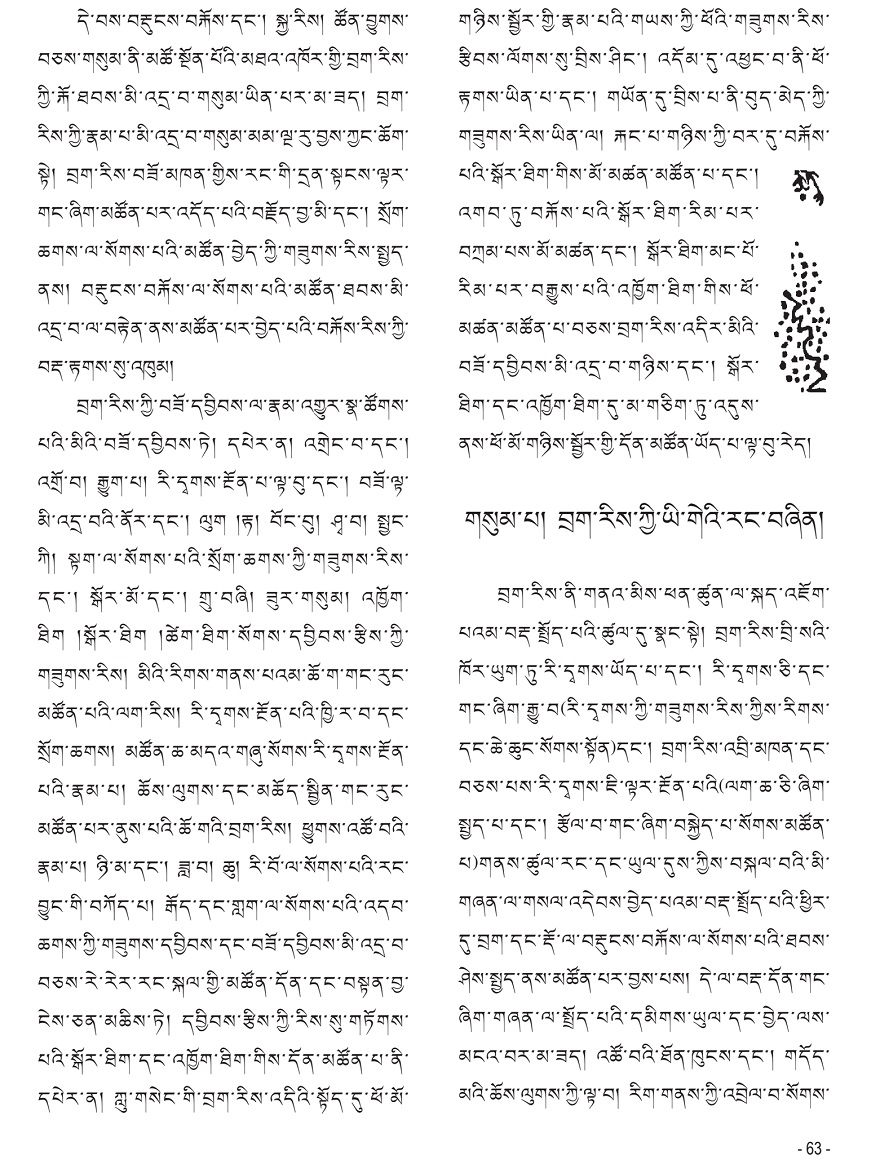 དེ་བས་བརྡུངས་བརྐོས་དང་། སྐྱ་རིས། ཚོན་བྱུགས་
བཅས་གསུམ་ནི་མཚོ་སྔོན་པོའི་མཐའ་འཁོར་གྱི་བྲག་རིས་
ཀྱི་རྐོ་ཐབས་མི་འདྲ་བ་གསུམ་ཡིན་པར་མ་ཟད། བྲག་
རིས་ཀྱི་རྣམ་པ་མི་འདྲ་བ་གསུམ་མམ་ལྔ་རུ་བྱས་ཀྱང་ཆོག་
སྟེ། བྲག་རིས་བཟོ་མཁན་གྱིས་རང་གི་དྲན་སྟངས་ལྟར་
གང་ཞིག་མཚོན་པར་འདོད་པའི་བརྗོད་བྱ་མི་དང་། སྲོག་
ཆགས་ལ་སོགས་པའི་མཚོན་བྱེད་ཀྱི་གཟུགས་རིས་སྤྱད་
ནས། བརྡུངས་བརྐོས་ལ་སོགས་པའི་མཚོན་ཐབས་མི་
འདྲ་བ་ལ་བརྟེན་ནས་མཚོན་པར་བྱེད་པའི་བརྐོས་རིས་ཀྱི་
བརྡ་རྟགས་སུ་འཁུམ།
བྲག་རིས་ཀྱི་བཟོ་དབྱིབས་ལ་རྣམ་འགྱུར་སྣ་ཚོགས་
པའི་མིའི་བཟོ་དབྱིབས་ཏེ། དཔེར་ན། འགྲེང་བ་དང་།
འགྲོ་བ། རྒྱུག་པ། རི་དྭགས་རྔོན་པ་ལྟ་བུ་དང་། བཟོ་ལྟ་
མི་འདྲ་བའི་ནོར་དང་། ལུག །རྟ། བོང་བུ། ཤྭ་བ། སྤྱང་
ཀི། སྟག་ལ་སོགས་པའི་སྲོག་ཆགས་ཀྱི་གཟུགས་རིས་
དང་། སྒོར་མོ་དང་། གྲུ་བཞི། ཟུར་གསུམ། འཁྱོག་
ཐིག །སྒོར་ཐིག །ཚེག་ཐིག་སོགས་དབྱིབས་རྩིས་ཀྱི་
གཟུགས་རིས། མིའི་རིགས་གནས་པའམ་ཆོ་ག་གང་རུང་
མཚོན་པའི་ལག་རིས། རི་དྭགས་རྔོན་པའི་ཁྱི་ར་བ་དང་
སྲོག་ཆགས། མཚོན་ཆ་མདའ་གཞུ་སོགས་རི་དྭགས་རྔོན་
པའི་རྣམ་པ། ཆོས་ལུགས་དང་མཆོད་སྦྱིན་གང་རུང་
མཚོན་པར་ནུས་པའི་ཆོ་གའི་བྲག་རིས། ཕྱུགས་འཚོ་བའི་
རྣམ་པ། ཉི་མ་དང་། ཟླ་བ། ཆུ། རི་བོ་ལ་སོགས་པའི་རང་
བྱུང་གི་བཀོད་པ། རྒོད་དང་གླག་ལ་སོགས་པའི་འདབ་
ཆགས་ཀྱི་གཟུགས་དབྱིབས་དང་བཟོ་དབྱིབས་མི་འདྲ་བ་
བཅས་རེ་རེར་རང་སྐལ་གྱི་མཚོན་དོན་དང་བསྟན་བྱ་
ངེས་ཅན་མཆིས་ཏེ། དབྱིབས་རྩིས་ཀྱི་རིས་སུ་གཏོགས་
པའི་སྒོར་ཐིག་དང་འཁྱོག་ཐིག་གིས་དོན་མཚོན་པ་ནི་
དཔེར་ན། ཀླུ་གསེང་གི་བྲག་རིས་འདིའི་སྟོད་དུ་ཕོ་མོ་
གཉིས་སྦྱོར་གྱི་རྣམ་པའི་གཡས་ཀྱི་ཕོའི་གཟུགས་རིས་
རྩིབས་ལོགས་སུ་བྲིས་ཤིང་། འདོམ་དུ་འཕྱང་བ་ནི་ཕོ་
རྟགས་ཡིན་པ་དང་། གཡོན་དུ་བྲིས་པ་ནི་བུད་མེད་ཀྱི་
གཟུགས་རིས་ཡིན་ལ། རྐང་པ་གཉིས་ཀྱི་བར་དུ་བརྐོས་
པའི་སྒོར་ཐིག་གིས་མོ་མཚན་མཚོན་པ་དང་།
འགབ་ཏུ་བརྐོས་པའི་སྒོར་ཐིག་རིམ་པར་
བཀྲམ་པས་མོ་མཚན་དང་། སྒོར་ཐིག་མང་པོ་
རིམ་པར་བརྒྱུས་པའི་འཁྱོག་ཐིག་གིས་ཕོ་
མཚན་མཚོན་པ་བཅས་བྲག་རིས་འདིར་མིའི་
བཟོ་དབྱིབས་མི་འདྲ་བ་གཉིས་དང་། སྒོར་
ཐིག་དང་འཁྱོག་ཐིག་དུ་མ་གཅིག་ཏུ་འདུས་
ནས་ཕོ་མོ་གཉིས་སྦྱོར་གྱི་དོན་མཚོན་ཡོད་པ་ལྟ་བུ་རེད།
གསུམ་པ། བྲག་རིས་ཀྱི་ཡི་གེའི་རང་བཞིན།
བྲག་རིས་ནི་གནའ་མིས་ཕན་ཚུན་ལ་སྐད་འཇོག་
པའམ་བརྡ་སྤྲོད་པའི་ཚུལ་དུ་སྣང་སྟེ། བྲག་རིས་བྲི་སའི་
ཁོར་ཡུག་ཏུ་རི་དྭགས་ཡོད་པ་དང་། རི་དྭགས་ཅི་དང་
གང་ཞིག་རྒྱུ་བ(རི་དྭགས་ཀྱི་གཟུགས་རིས་ཀྱིས་རིགས་
དང་ཆེ་ཆུང་སོགས་སྟོན)དང་། བྲག་རིས་འབྲི་མཁན་དང་
བཅས་པས་རི་དྭགས་ཇི་ལྟར་རྔོན་པའི(ལག་ཆ་ཅི་ཞིག་
སྤྱད་པ་དང་། རྩོལ་བ་གང་ཞིག་བསྐྱེད་པ་སོགས་མཚོན་
པ)གནས་ཚུལ་རང་དང་ཡུལ་དུས་ཀྱིས་བསྐལ་བའི་མི་
གཞན་ལ་གསལ་འདེབས་བྱེད་པའམ་བརྡ་སྤྲོད་པའི་ཕྱིར་
དུ་བྲག་དང་རྡོ་ལ་བརྡུངས་བརྐོས་ལ་སོགས་པའི་ཐབས་
ཤེས་སྤྱད་ནས་མཚོན་པར་བྱས་པས། དེ་ལ་བརྡ་དོན་གང་
ཞིག་གཞན་ལ་སྤྲོད་པའི་དམིགས་ཡུལ་དང་བྱེད་ལས་
མངའ་བར་མ་ཟད། འཚོ་བའི་ཐོན་ཁུངས་དང་། གདོད་
མའི་ཆོས་ལུགས་ཀྱི་ལྟ་བ། རིག་གནས་ཀྱི་འབྲེལ་བ་སོགས་
- 63 -